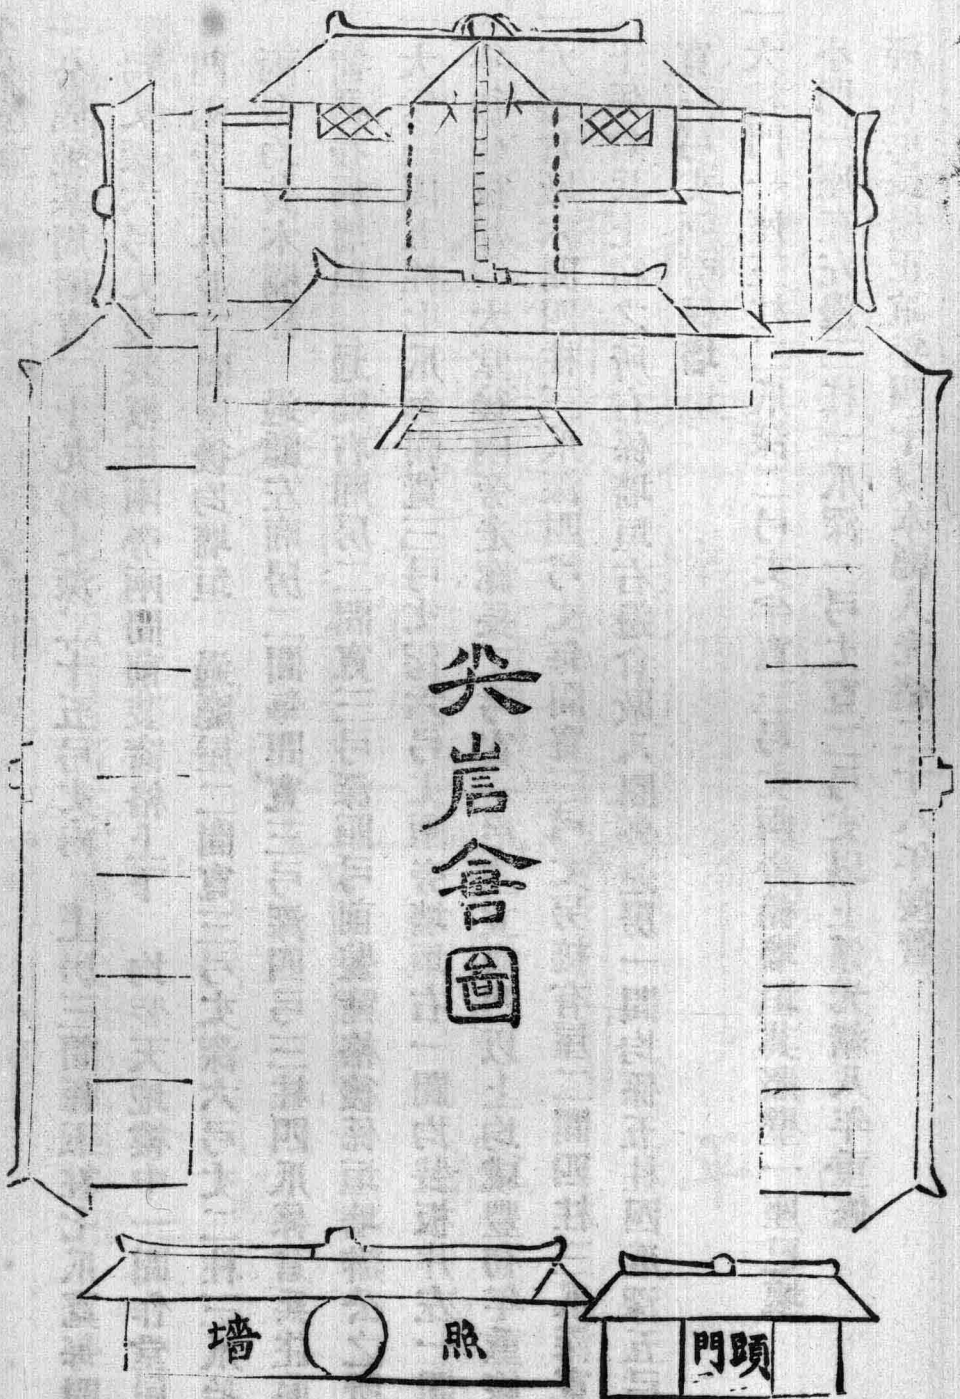 尖岩會圖
照墻
頭門